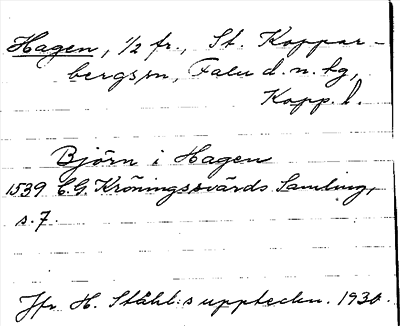 Hagen, 1/2 fr., St. Koppar-
bergs sn, Falu d. n. tg,
Kopp. l.
Björn i Hagen
1539 C.G. Kröningssvärds Samling,
s. 7.
Jfr H. Ståhl:s uppteckn. 1930.